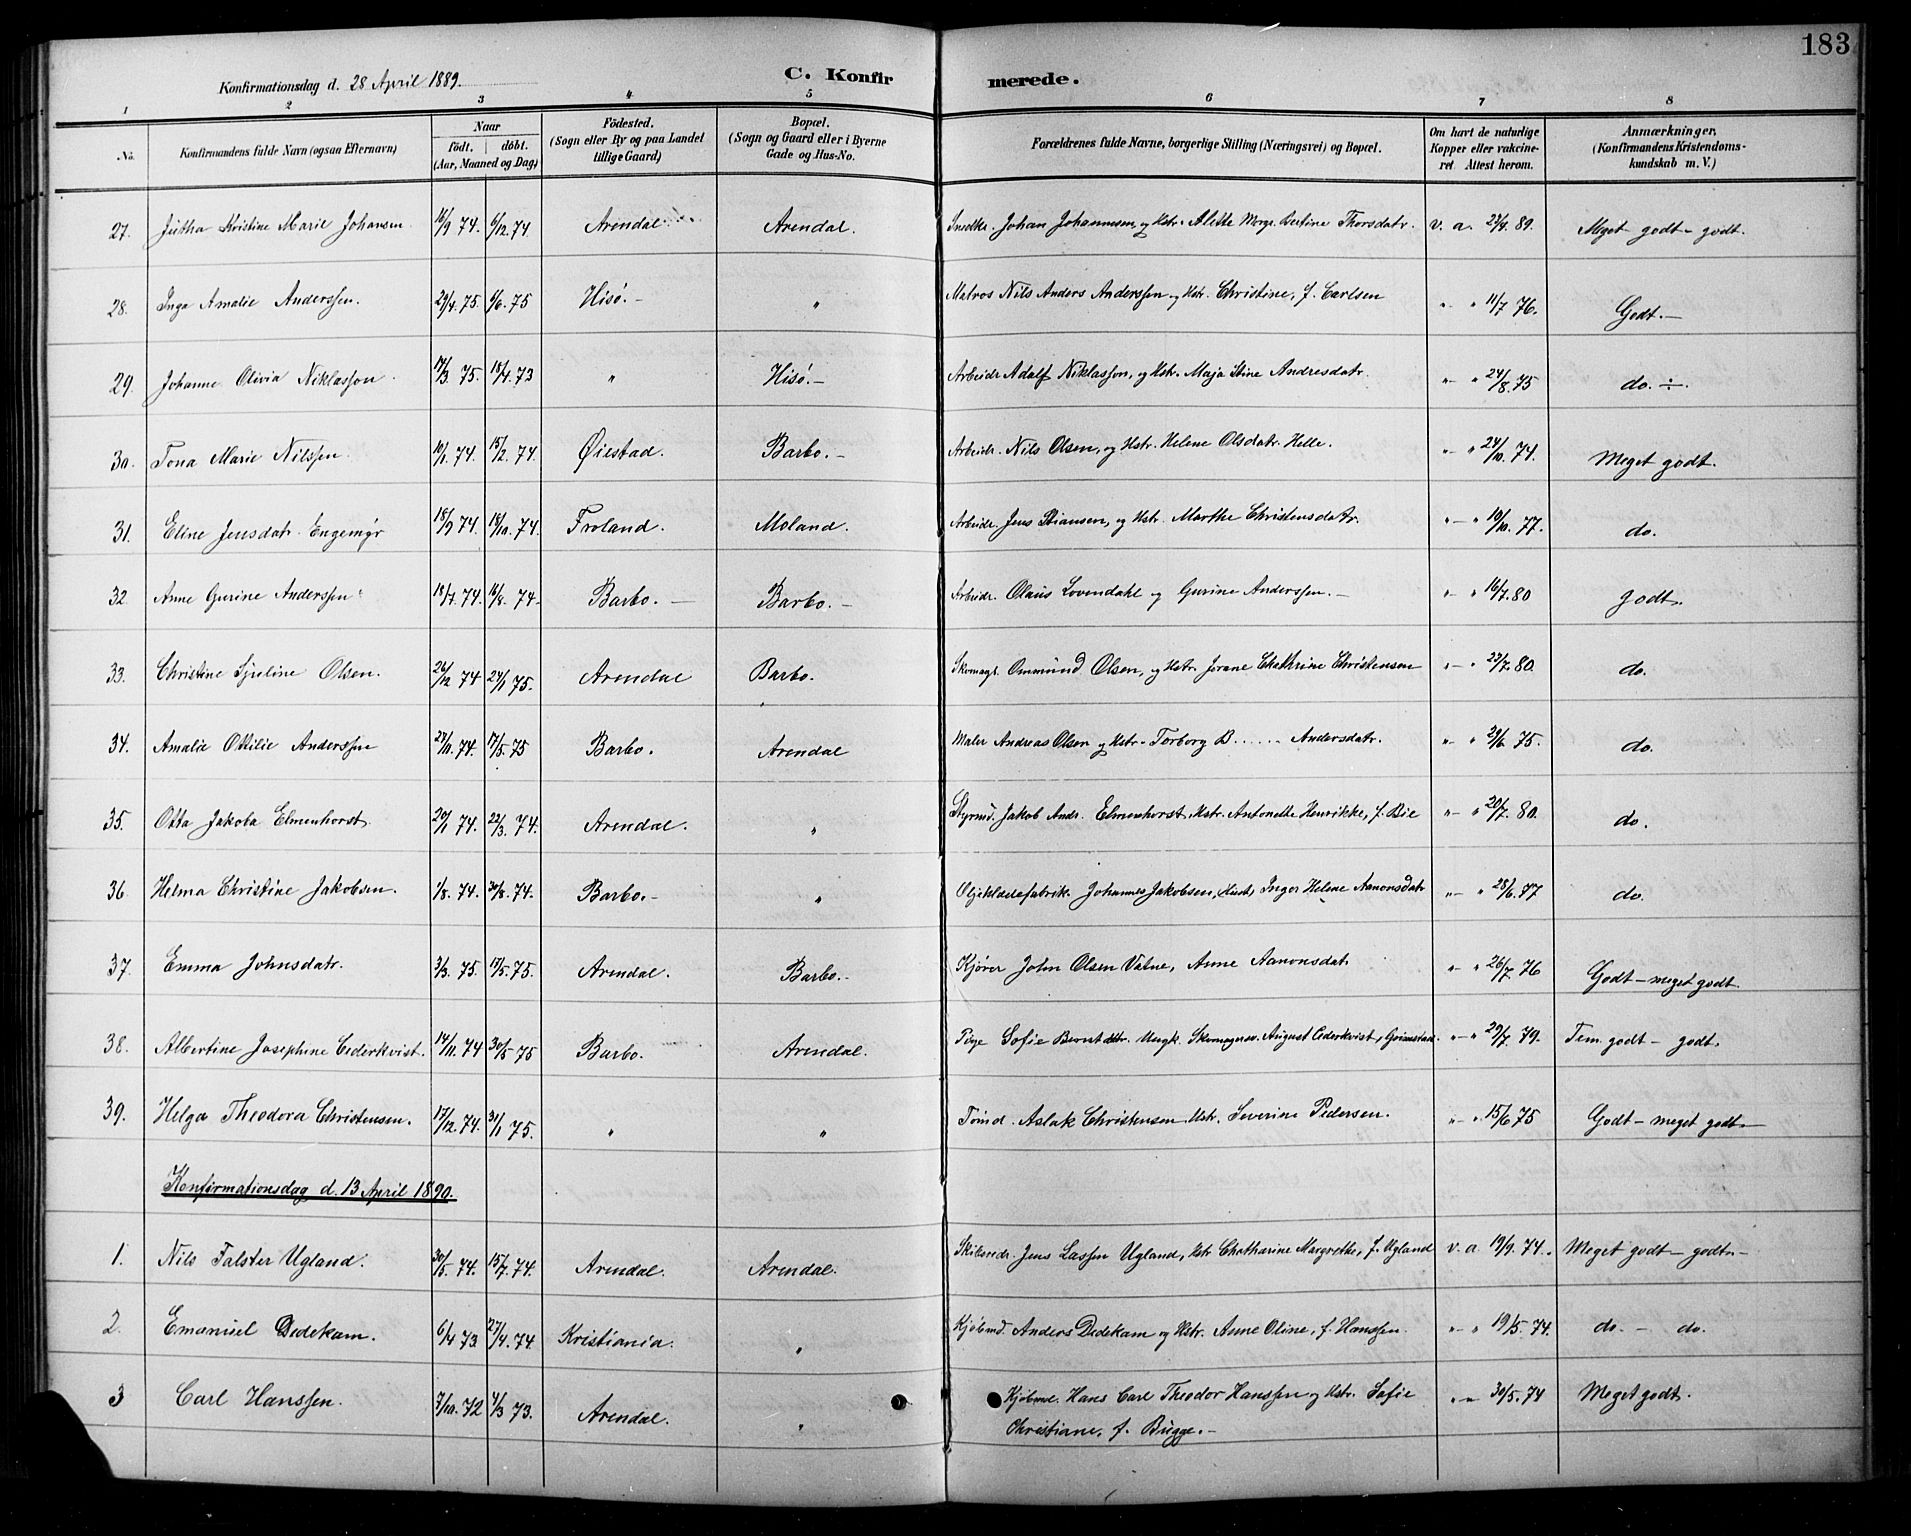 183
Konfirmationsdag d. 28 April 1889.
C. Konfirmerede.
1 2 3 4 5 6 7 8
No. Konfirmandens fulde Navn (ogsaa Efternavn) Naar født. døbt. (Aar, Maaned og Dag) Födested. (Sogn eller By og paa Landet tillige Gaard) Bopæl. (Sogn og Gaard eller i Byerne Gade og Hus-No. Forældrenes fulde Navne, borgerlige Stilling (Næringsvei) og Bopæl. Om havt de naturlige Kopper eller vakcineret. Attest herom. Anmærkninger. (Konfirmandens Kristendomskundskab m. V.)
27. Jutha Kristine Marie Johansen 16/9 74. 6/12. 74 Arendal Arendal. Johan Johannesen, og Hstr. Alette Marge Bertine Thorsdatr. v. a. 23/4. 89. Meget godt - godt.
28. Inga Amalie Anderssen. 29/4. 75. 6/6. 75 Hisö. - " Matros Nils Anders Anderssen og Hstr. Christine, f. Carlsen " - " 11/7 76. Godt. -
29. Johanne Olivia Niklasson 17/3. 75. 18/4. 73 " Hisö. - Arbeidr Adolf Niklasson, og Hstr. Maja Stine Andresdatr. " - " 24/8. 75 do. ÷.
30. Tona Marie Nilssen. 10/1. 74. 15/2. 74. Øiestad. Barbo. - Arbeidr. Nils Olsen, og Hstr. Helene Olsdatr. Helle. " - " 24/10. 74. Meget godt.
31. Eline Jensdatr. Engemyr 18/9 74. 18/10. 74. Froland. Moland. Arbeidr. Jens Stiansen, og Hstr. Marthe Christensdatr. " - " 10/10. 77. do.
32. Anne Gurine Anderssen 18/7. 74. 16/8. 74- Barbo. - Barbo. - Arbeidr. Olaus Lovendahl og Gurine Anderssen. - " - " 16/7. 80 godt.
33. Christine Sjuline Olsen. 26/12 74 24/1 75. Arendal Barbo. Skomagr. Ommund Olsen, og Hstr. Jorane Chathrine Christensen " - " 23/7. 80. do.
34. Amalie Ottilie Anderssen 27/11. 74. 17/5. 75 Barbo. Arendal Maler Andreas Olsen og Hstr. Torborg B...... Andersdatr. " - " 29/6 75. do.
35. Otta Jakoba Elmenhorst 20/1 74. 22/3. 74. Arendal. " Styrmd. Jakob Andr. Elmenhorst, Hstr. Antonette Henrikke, f. Bie " - " 20/7. 80. do.
36. Helma Christine Jakobsen. 1/8. 74. 30/8. 74. Barbo. - " Oljeklædefabrik. Johannes Jakobsen, Hust, Inger Helene Aanonsdatr " - " 28/6. 77 do.
37. Emma Johnsdatr. 3/3. 75. 17/5. 75. Arendal. Barbo. - Kjører John Olsen Vatne, Anne Aanonsdat " - " 26/7. 76 Godt - meget godt.
38. Albertine Josephine Cederkvist. 14/11. 74 30/5 75 Barbo. Arendal. Pige Sofie Berntsdtr. Ungk. Skomagersv. August Cederkvist, Grimstad. " - " 29/7. 79. Tem. godt - godt.
39. Helga Theodora Christensen. 17/12. 74. 31/1 75. " " Tømd. Aslak Christensen Hstr. Severine Pedersen. " - " 15/6 75 Godt - meget godt -
Konfirmationsdag d. 13 April 1890.
1. Nils Falster Ugland. 30/5. 74. 15/7. 74. Arendal. Arendal. Skibsredr. Jens Lassen Ugland, Hstr Chatharine Margrethe, f. Ugland v. a 19/9. 74. Meget godt - godt -
2. Emanuel Dedekam. 6/4 73 27/4. 74. Kristiania. " Kjøbmd. Anders Dedekam og Hstr. Anne Oline, f. Hanssen. " - " 19/5. 74. do. - do.
3 Carl Hanssen. 7/10. 72 4/3 73. Arendal. " Kjøbmd. Hans Carl Theodor Hanssen og Hstr. Sofie " " 30/5. 74 Meget godt.
Christiane, f. Bugge. -